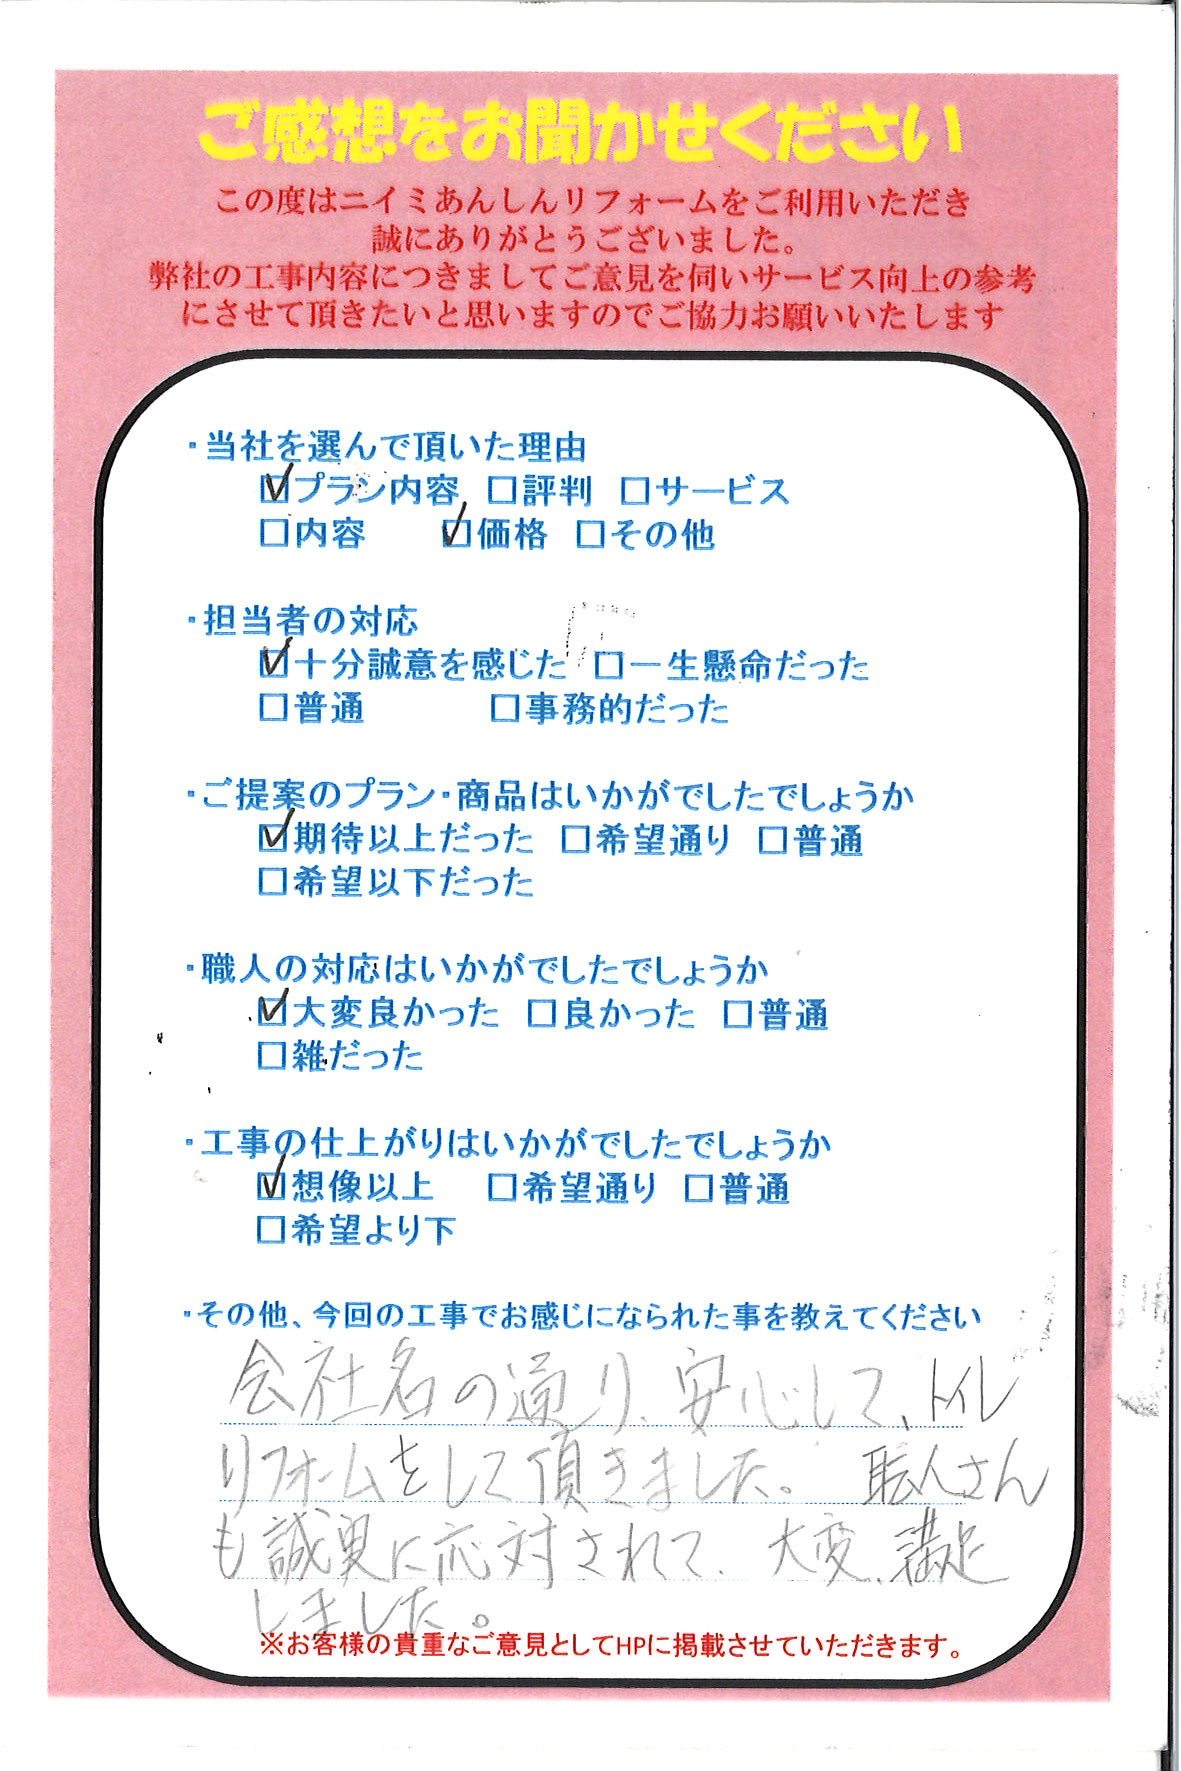 ご感想をお聞かせください
この度はニイミあんしんリフォームをご利用いただき
誠にありがとうございました。
弊社の工事内容につきましてご意見を伺いサービス向上の参考
にさせて頂きたいと思いますのでご協力お願いいたします
・当社を選んで頂いた理由
☑プラン内容 □評判 □サービス
□内容 ☑価格 □その他
・担当者の対応
☑十分誠意を感じた □一生懸命だった
□普通 □事務的だった
・ご提案のプラン・商品はいかがでしたでしょうか
☑期待以上だった □希望通り □普通
□希望以下だった
・職人の対応はいかがでしたでしょうか
☑大変良かった □良かった □普通
□雑だった
・工事の仕上がりはいかがでしたでしょうか
☑想像以上 □希望通り □普通
□希望より下
・その他、今回の工事でお感じになられた事を教えてください
会社名の通り、安心して、トイレ
リフォームをして頂きました。 職人さん
も誠実に応対されて、大変、満足
しました。
※お客様の貴重なご意見としてHPに掲載させていただきます。